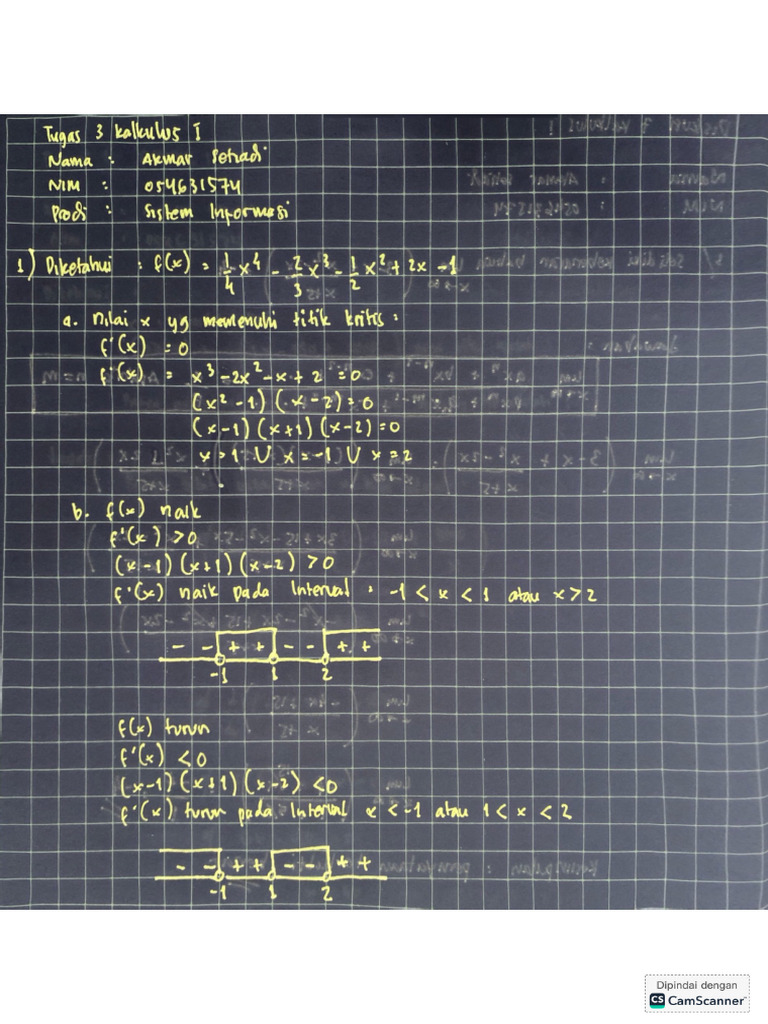 Tugas 3 Kalkulus I
Nama : Akmar Setiadi
NIM : 054631574
Prodi : Sistem Informasi
1) Diketahui : f(x) = 1/4 x⁴ - 2/3 x³ - 1/2 x² + 2x - 1
a. Nilai x yg memenuhi titik kritis :
f'(x) = 0
f'(x) = x³ - 2x² - x + 2 = 0
(x² - 1) (x - 2) = 0
(x - 1) (x + 1) (x - 2) = 0
x = 1 ∪ x = -1 ∪ x = 2
b. f(x) naik
f'(x) > 0
(x - 1) (x + 1) (x - 2) > 0
f'(x) naik pada Interval : -1 < x < 1 atau x > 2
- - + + - - + +
-1 1 2
f(x) turun
f'(x) < 0
(x - 1) (x + 1) (x - 2) < 0
f'(x) turun pada Interval x < -1 atau 1 < x < 2
- - + + - - + +
-1 1 2
Dipindai dengan
CS CamScanner